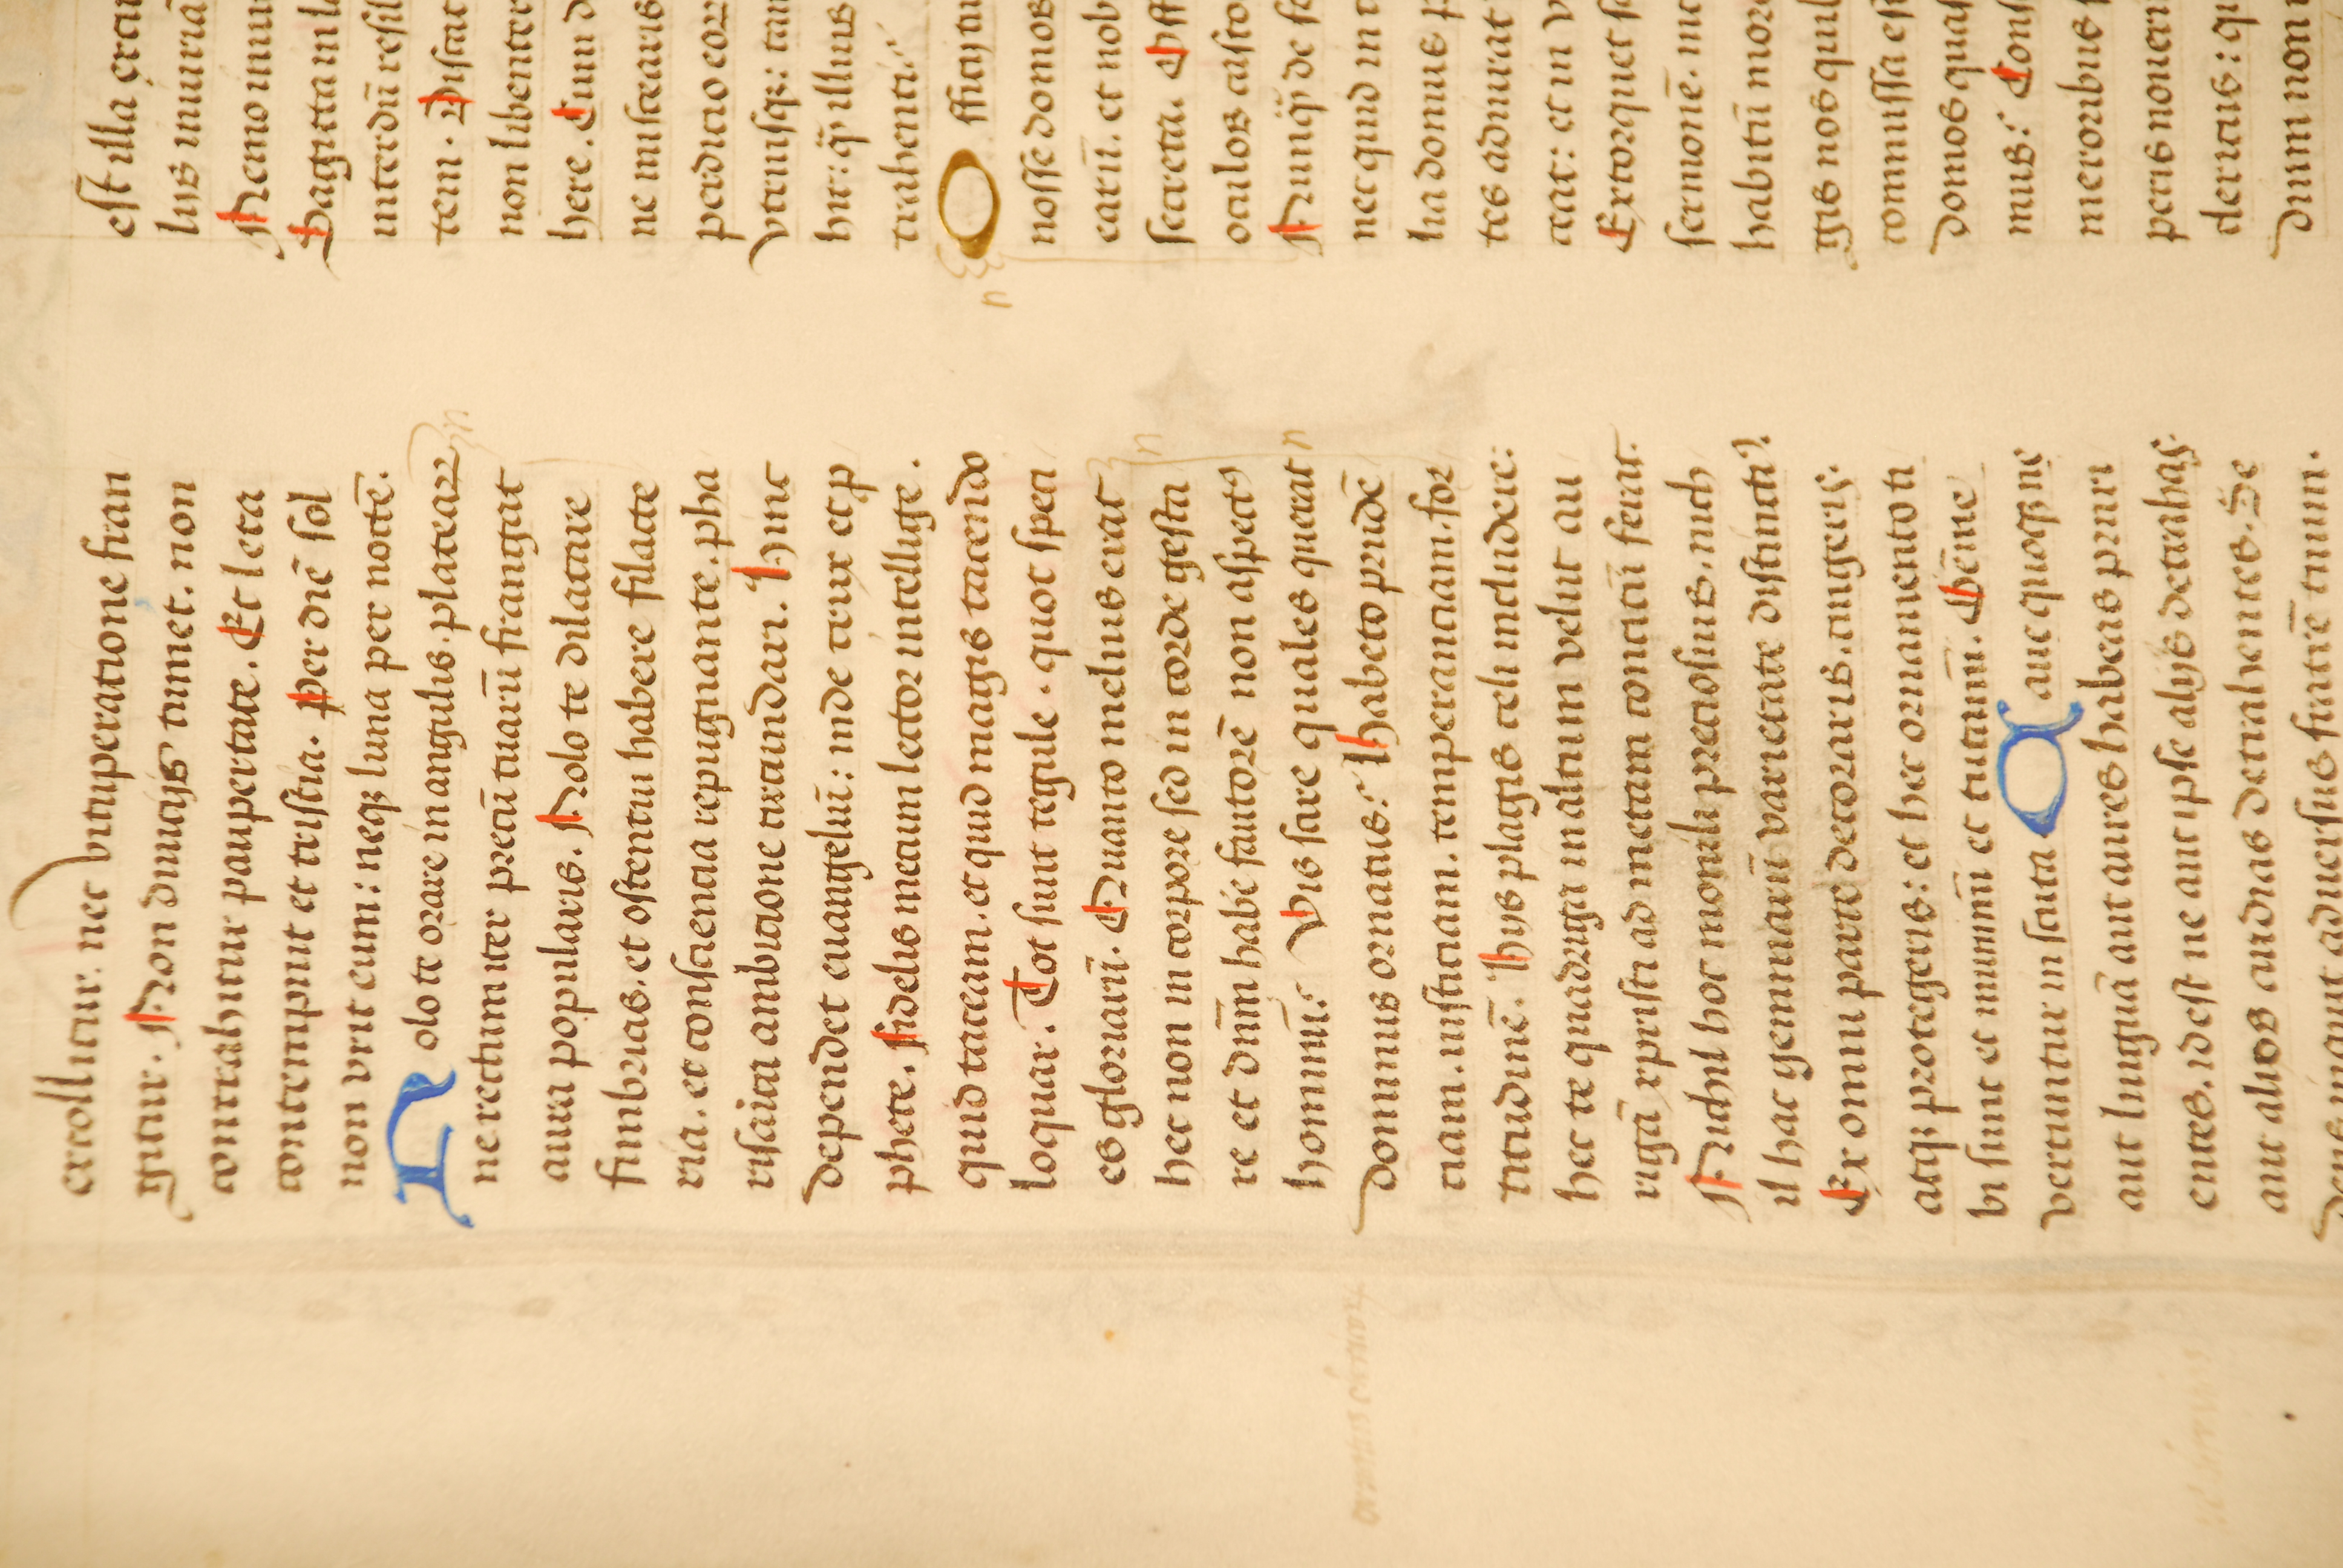 extollitur. nec vituperatione fran
gitur. Non diuicijs tumet. non
contrahitur paupertate. Et leta
contempnit et tristia. Per diē sol
non vrit eum: neqꝫ luna per noctē.
Nolo te orare in angulis. plateaꝝ
ne rectum iter precū tuarū frangat
aura popularis. Nolo te dilatare
fimbrias. et ostentui habere filacte
ria. et consciencia repugnante. pha
risaica ambicione circundari. Hinc
dependet euangeliū: inde crux et ꝓ
phete. Fidelis mecum lector intellige.
quid taceam. et quid magis tacendo
loquar. Tot sunt regule. quot speci
es gloriarū. Quanto melius erat
hec non in corpore sed in corde gesta
re et dn̄m habe fautorē non aspectꝰ
hominū. Vis scire quales querat
dominus ornatus. Habeto prudē
ciam. iusticiam. temperanciam. for
titudinē. Hijs plagis celi includere:
hec te quadriga in altum velut au
rigā xpristi ad metam concitū ferat.
Nichil hoc monili preciosius. nich
il hac gemmarū varietate distinctiꝰ.
Ex omni parte decoraris. cingeris.
atqꝫ protegeris: et hec ornamento ti
bi sunt et munimī et tutamī. Gēme
vertuntur in scuta Caue quoqꝫ ne
aut linguā aut aures habeas pruri
entes. idest ne aut ipse alijs detrahas.
aut alios audias detrahentes. Se
dens inquit aduersus fratrē tuum.
est illa
lius iniuriā
Nemo inui
Sagitta in la
interdū resil
tem. Discat
non libenter
here. Cum d
ne miscearis
perdicio eor
vtriusqꝫ: tam
hit: qꝫ illius
trahenti.
Officij tu
nosse domos
carū. et nob
secreta. Off
oculos casto
Nunqꝫ de fo
nec quid in
lia domus p
tes adiurat
ceat: et in v
Extorquet
sermonē.
habitū mor
gis nos quil
commissa est
domos quas
mus. Cons
meroribus
peris nouerī
clericus: qu
dum non